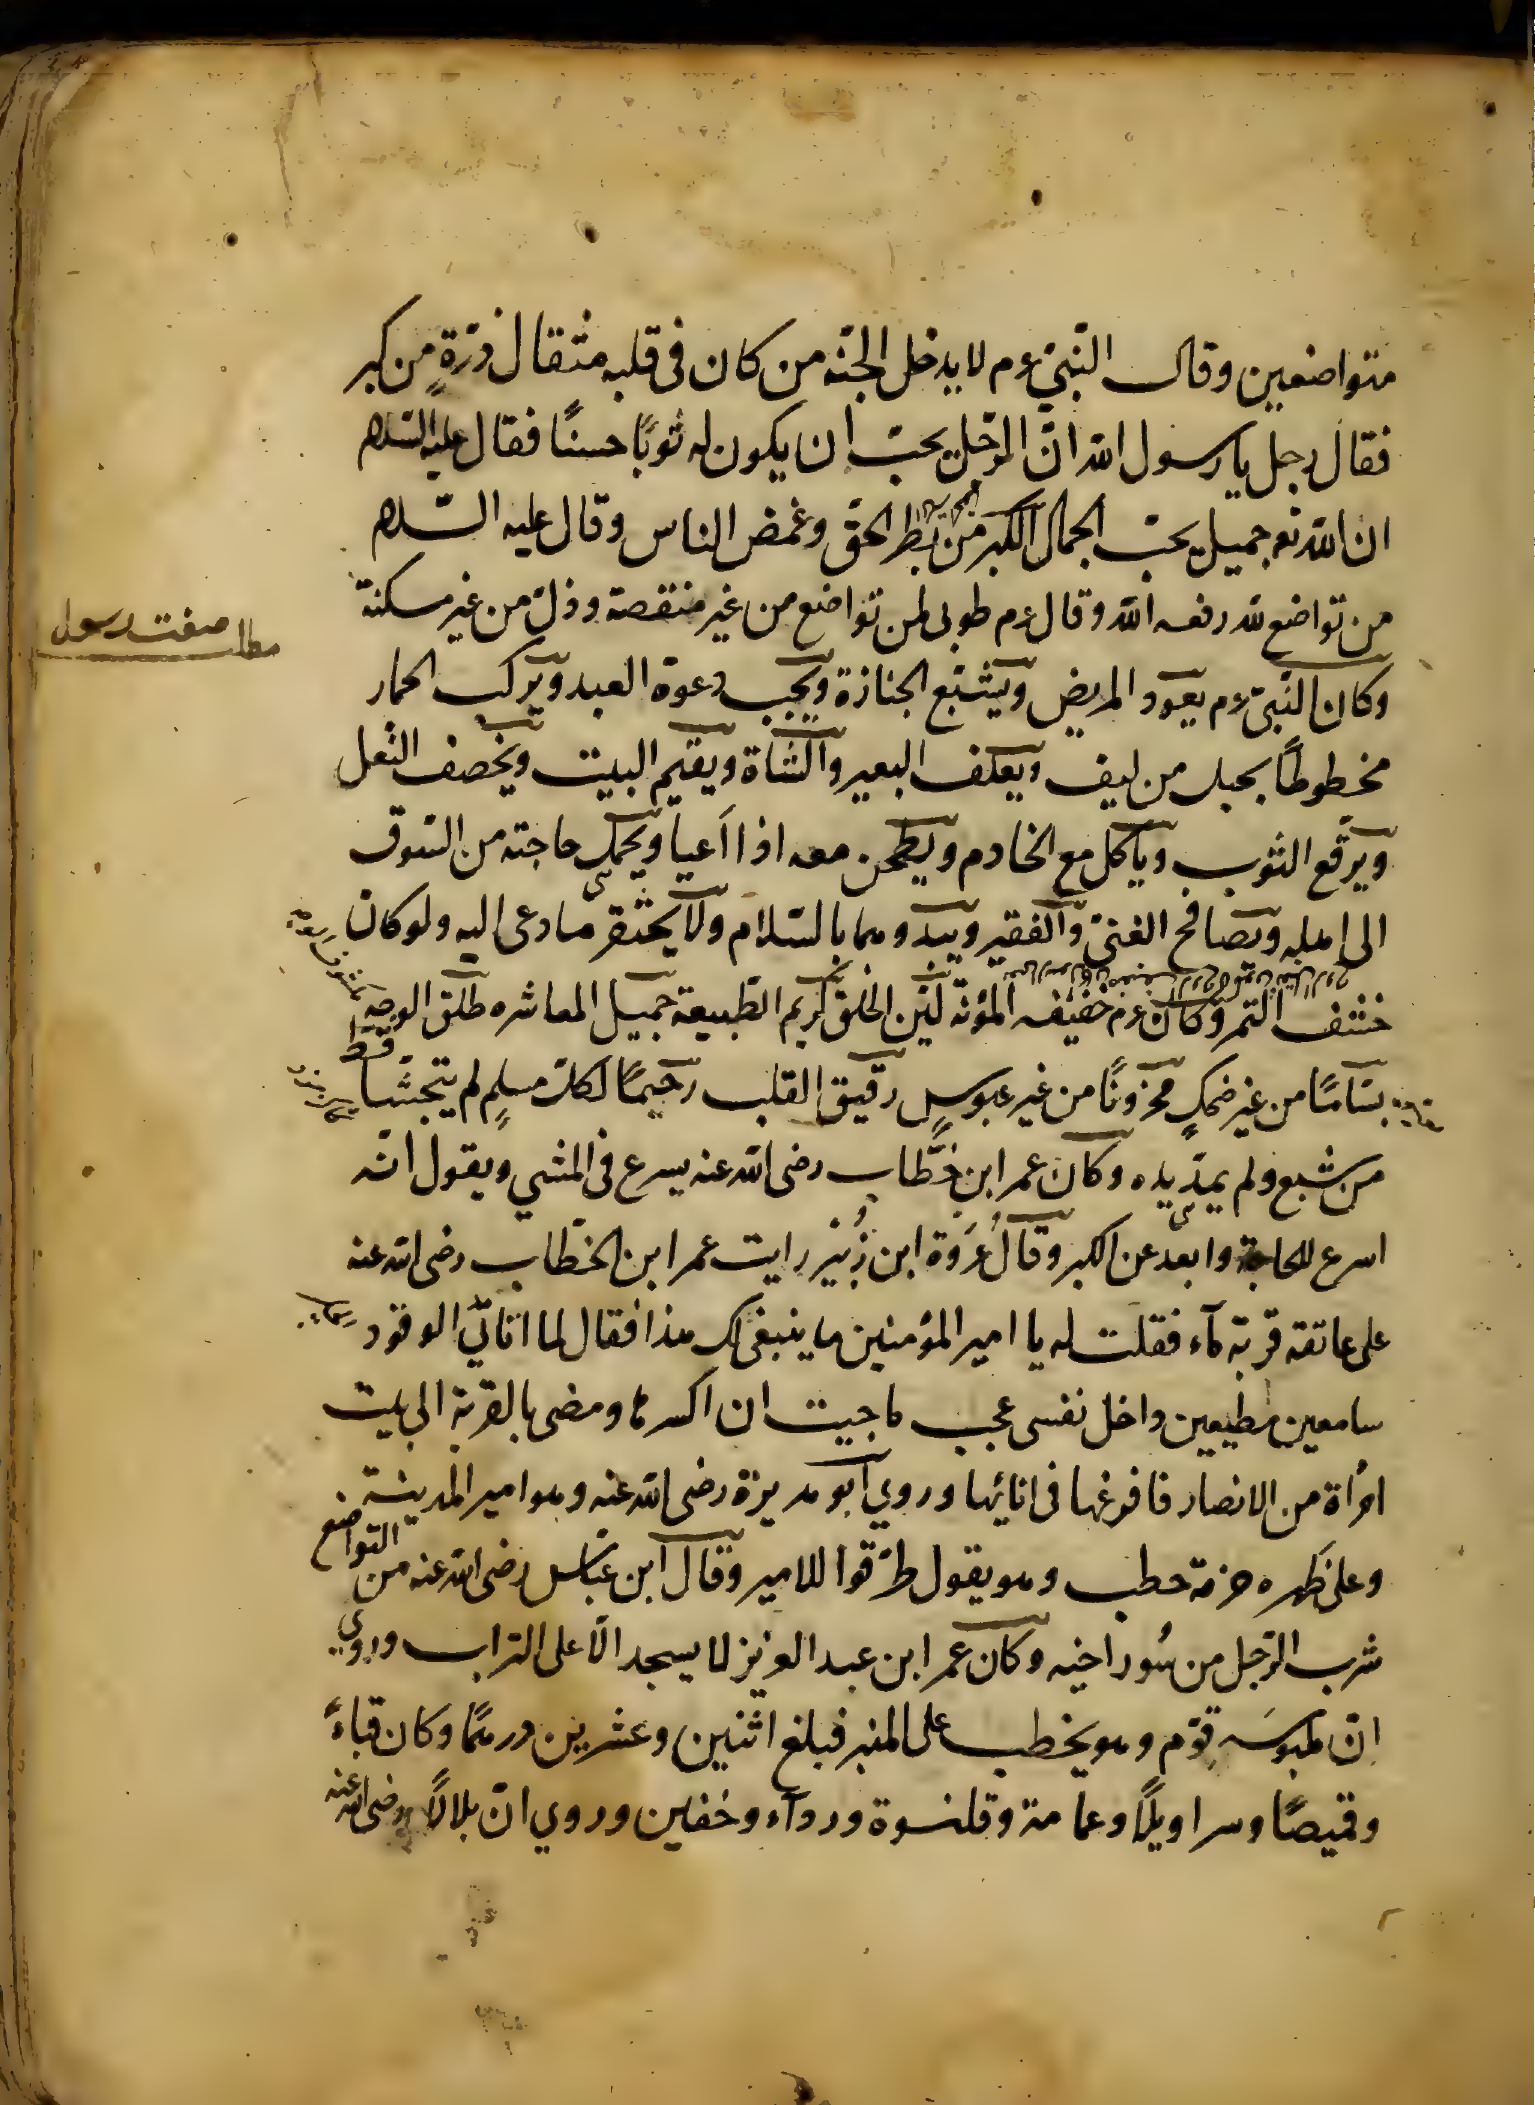 متواضعين وقال النّبيّ عم لا يدخل الجنّة من كان فى قلبه مثقال ذرّةٍ من كبر
فقال رجل يا رسول الله انّ الرّجل يحبّ ان يكون له ثوبًا حسنًا فقال عليه السّلام
ان الله تع جميل يحبّ الجمال الكبر من بطر الحقّ وغمض الناس وقال عليه السّلام
من تواضع لله رفعه الله وقال عم طوبى لمن تواضع من غير منقصة وذلّ من غير مسكنة
مطلب صفت رسول
وكان النّبىّ عم يعود المريض ويشتبع الجنازة ويجيب دعوة العبد ويركب الحمار
مخطوطًا بحبل من ليف ويعلف البعير والشاة ويقيم البيت ويخصف النّعل
ويرقّع الثوب وياكل مع الخادم ويطحن معه اذا اعيا ويحمل حاجته من السّوق
الى اهله ويصافح الغنىّ والفقير ويبدوهما بالسّلام ولا يحتقر ما دعى اليه ولو كان
خشف التمر وكان عم خفيف المؤنة ليّن الخلق كريم الطّبيعة جميل المعاشره طلق الوجه
بسّامًا من غير ضحكٍ محزونًا من غير عبوسٍ رقيق القلب رحيمًا لكلّ مسلمٍ لم يتجشّأ قط
من شبع ولم يمدّ يده وكان عمر ابن خطّاب رضى الله عنه يسرع فى المشي ويقول انّه
اسرع للحاجة وابعد عن الكبر وقال عُروَة ابن زُبير رايت عمر ابن الخطّاب رضى الله عنه
على عاتقه قربة مآء فقلت له يا امير المؤمنين ما ينبغى لك هذا فقال لما اتانى الوفود
سامعين مطيعين داخل نفسى عجب فاجبت ان اكسرها ومضى بالقربة الى بيت
امرأة من الانصار فافرغها فى انائها وروي ابو هريرة رضى الله عنه وهو امير المدينة
وعلى ظهره حزمة حطب وهو يقول طرّقوا للامير وقال ابن عبّاس رضى الله عنه من التواضع
شرب الرّجل من سُور اخيه وكان عمر ابن عبد العزيز لا يسجد الّا على التراب وروي
انّ ملبوسه قوّم وهو يخطب على المنبر فبلغ اثنين وعشرين درهمًا وكان قباءً
وقميصًا وسراويلًا وعمامة وقلنسوة وردآء وخفين وروي انّ بلالًا رضى الله عنه